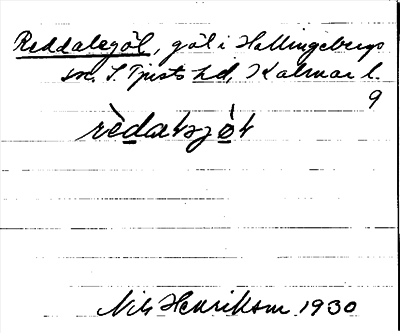 Reddalegöl, göl i Hallingebergs
sn. S. Tjusts hd, Kalmar l.
9
rèdalsjö̀l
Nils Henrikson 1930